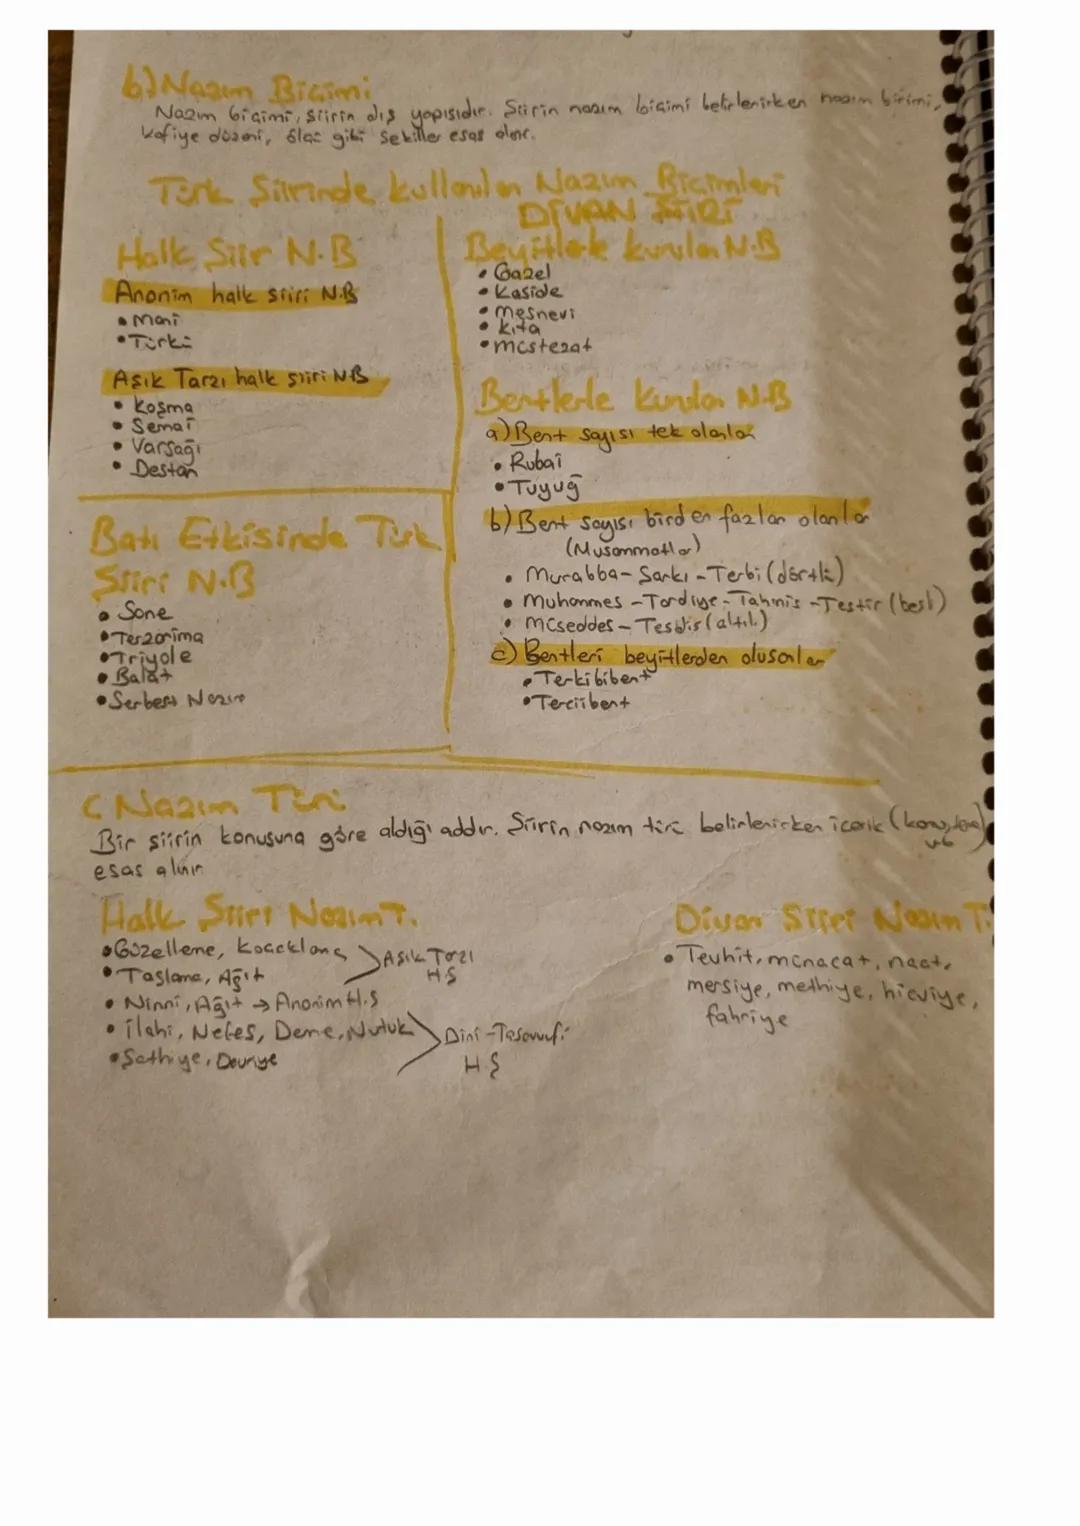 b) Nazım Biçimi
Nazım biçimi, şiirin dış yapısıdır. Şiirin nazım biçimi belirlenirken nazım birimi,
kafiye düzeni, ölçü gibi şekiller esas alınır.
Türk Şiirinde kullanılan Nazım Biçimleri
DİVAN ŞİİRİ
Halk Şiir N.B
Anonim halk şiiri N.B
• Mani
• Türkü
Aşık Tarzı halk şiiri N.B
• Koşma
• Semaî
• Varsağı
• Destan
Beyitlerle kurulan N.B
• Gazel
• Kaside
• Mesnevi
• Kıta
• Müstezat
Bentlerle Kurulan N.B
a) Bent sayısı tek olanlar
• Rubaî
• Tuyuğ
b) Bent sayısı birden fazlan olanlar
(Musammatlar)
• Murabba - Şarkı - Terbi (dörtlü)
• Muhammes - Tardiye - Tahmis - Teştir (beşli)
• Müseddes - Tesdis (altılı)
c) Bentleri beyitlerden oluşanlar
• Terkibibent
• Terciibent
Batı Etkisinde Türk
Şiiri N.B
• Sone
• Terzarima
• Triyole
• Balat
• Serbest Nazım
C Nazım Türü
Bir şiirin konusuna göre aldığı addır. Şiirin nazım türü belirlenirken içerik (konu, tema)
vb
esas alınır
Halk Şiiri Nazım T.
• Güzelleme, Koçaklama
• Taşlama, Ağıt
Aşık Tarzı
H.Ş
• Ninni, Ağıt → Anonim H.Ş
• İlahi, Nefes, Deme, Nutuk
• Şathiye, Devriye
Dini - Tasavvufi
H.Ş
Divan Şiiri Nazım T.
• Tevhit, münacat, naat,
mersiye, methiye, hicviye,
fahriye